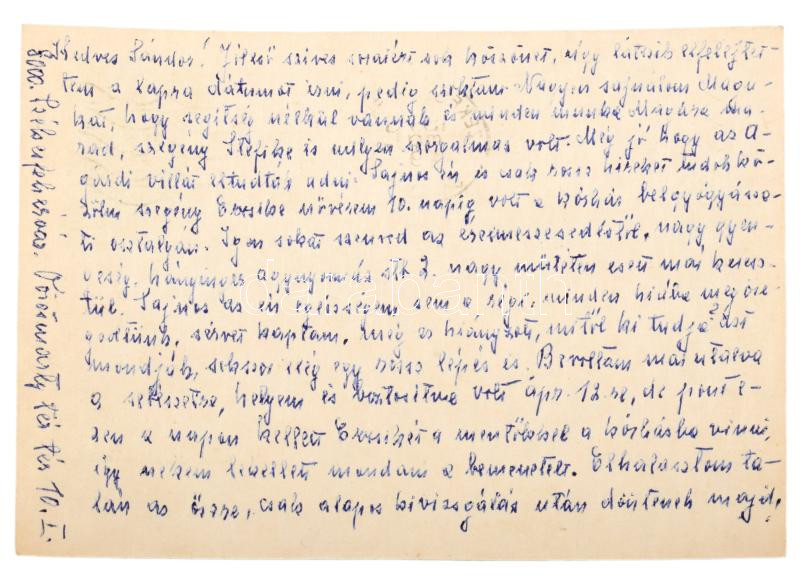 Kedves Sándor! Jóleső szives soraiért sok köszönet, úgy látszik elfelejtet-
tem a lapra dátumot irni, pedig szoktam. Nagyon sajnálom Magu-
kat, hogy segitség nélkül vannak és minden munka Magára ma-
rad, szegény Stefike is milyen szorgalmas volt. Még jó hogy az A-
gárdi villát eltudták adni. Sajnos én is csak rossz hireket tudok kö-
zölni szegény Erzsike nővérem 10. napig volt a kórház belgyógyásza-
ti osztályán. Igen sokat szenved az érelmeszesedéstől, nagy gyen-
geség, hányinger, agynyomás stb 2. nagy műtéten esett már keresz-
tül. Sajnos az én egészségem sem a régi, minden hiába megöre-
gedtünk, sérvet kaptam, még ez hiányzott, mitől ki tudja azt
mondják, sokszor elég egy rossz lépés is. Be voltam már utalva
a sebészetre, helyem is biztositva volt ápr. 12.re, de pont e-
zen a napon kellett Erzsikét a mentőkkel a kórházba vinni,
igy nekem le kellett mondani a bemenetelt. Elhalasztom ta-
lán az őszre, csak alapos kivizsgálás után döntenek majd.
8000. Székesfehérvár. Vörösmarty tér 10. I.